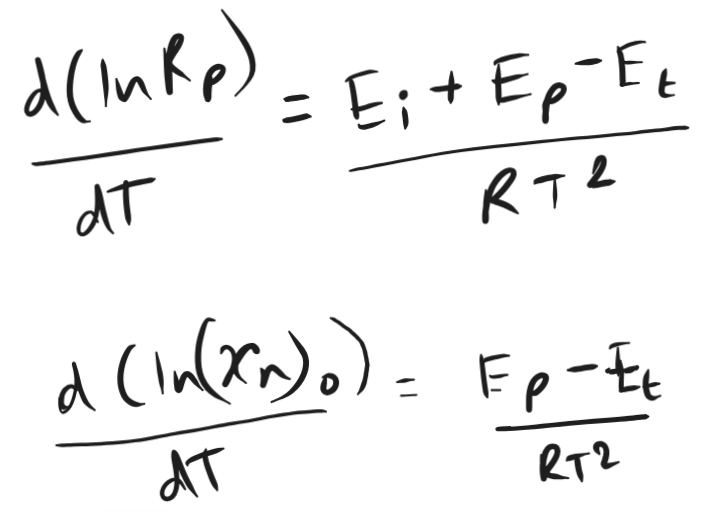 d(ln Rp)/dT = (Ei + Ep - Et)/RT²
d(ln(xn)₀)/dT = (Ep - Et)/RT²